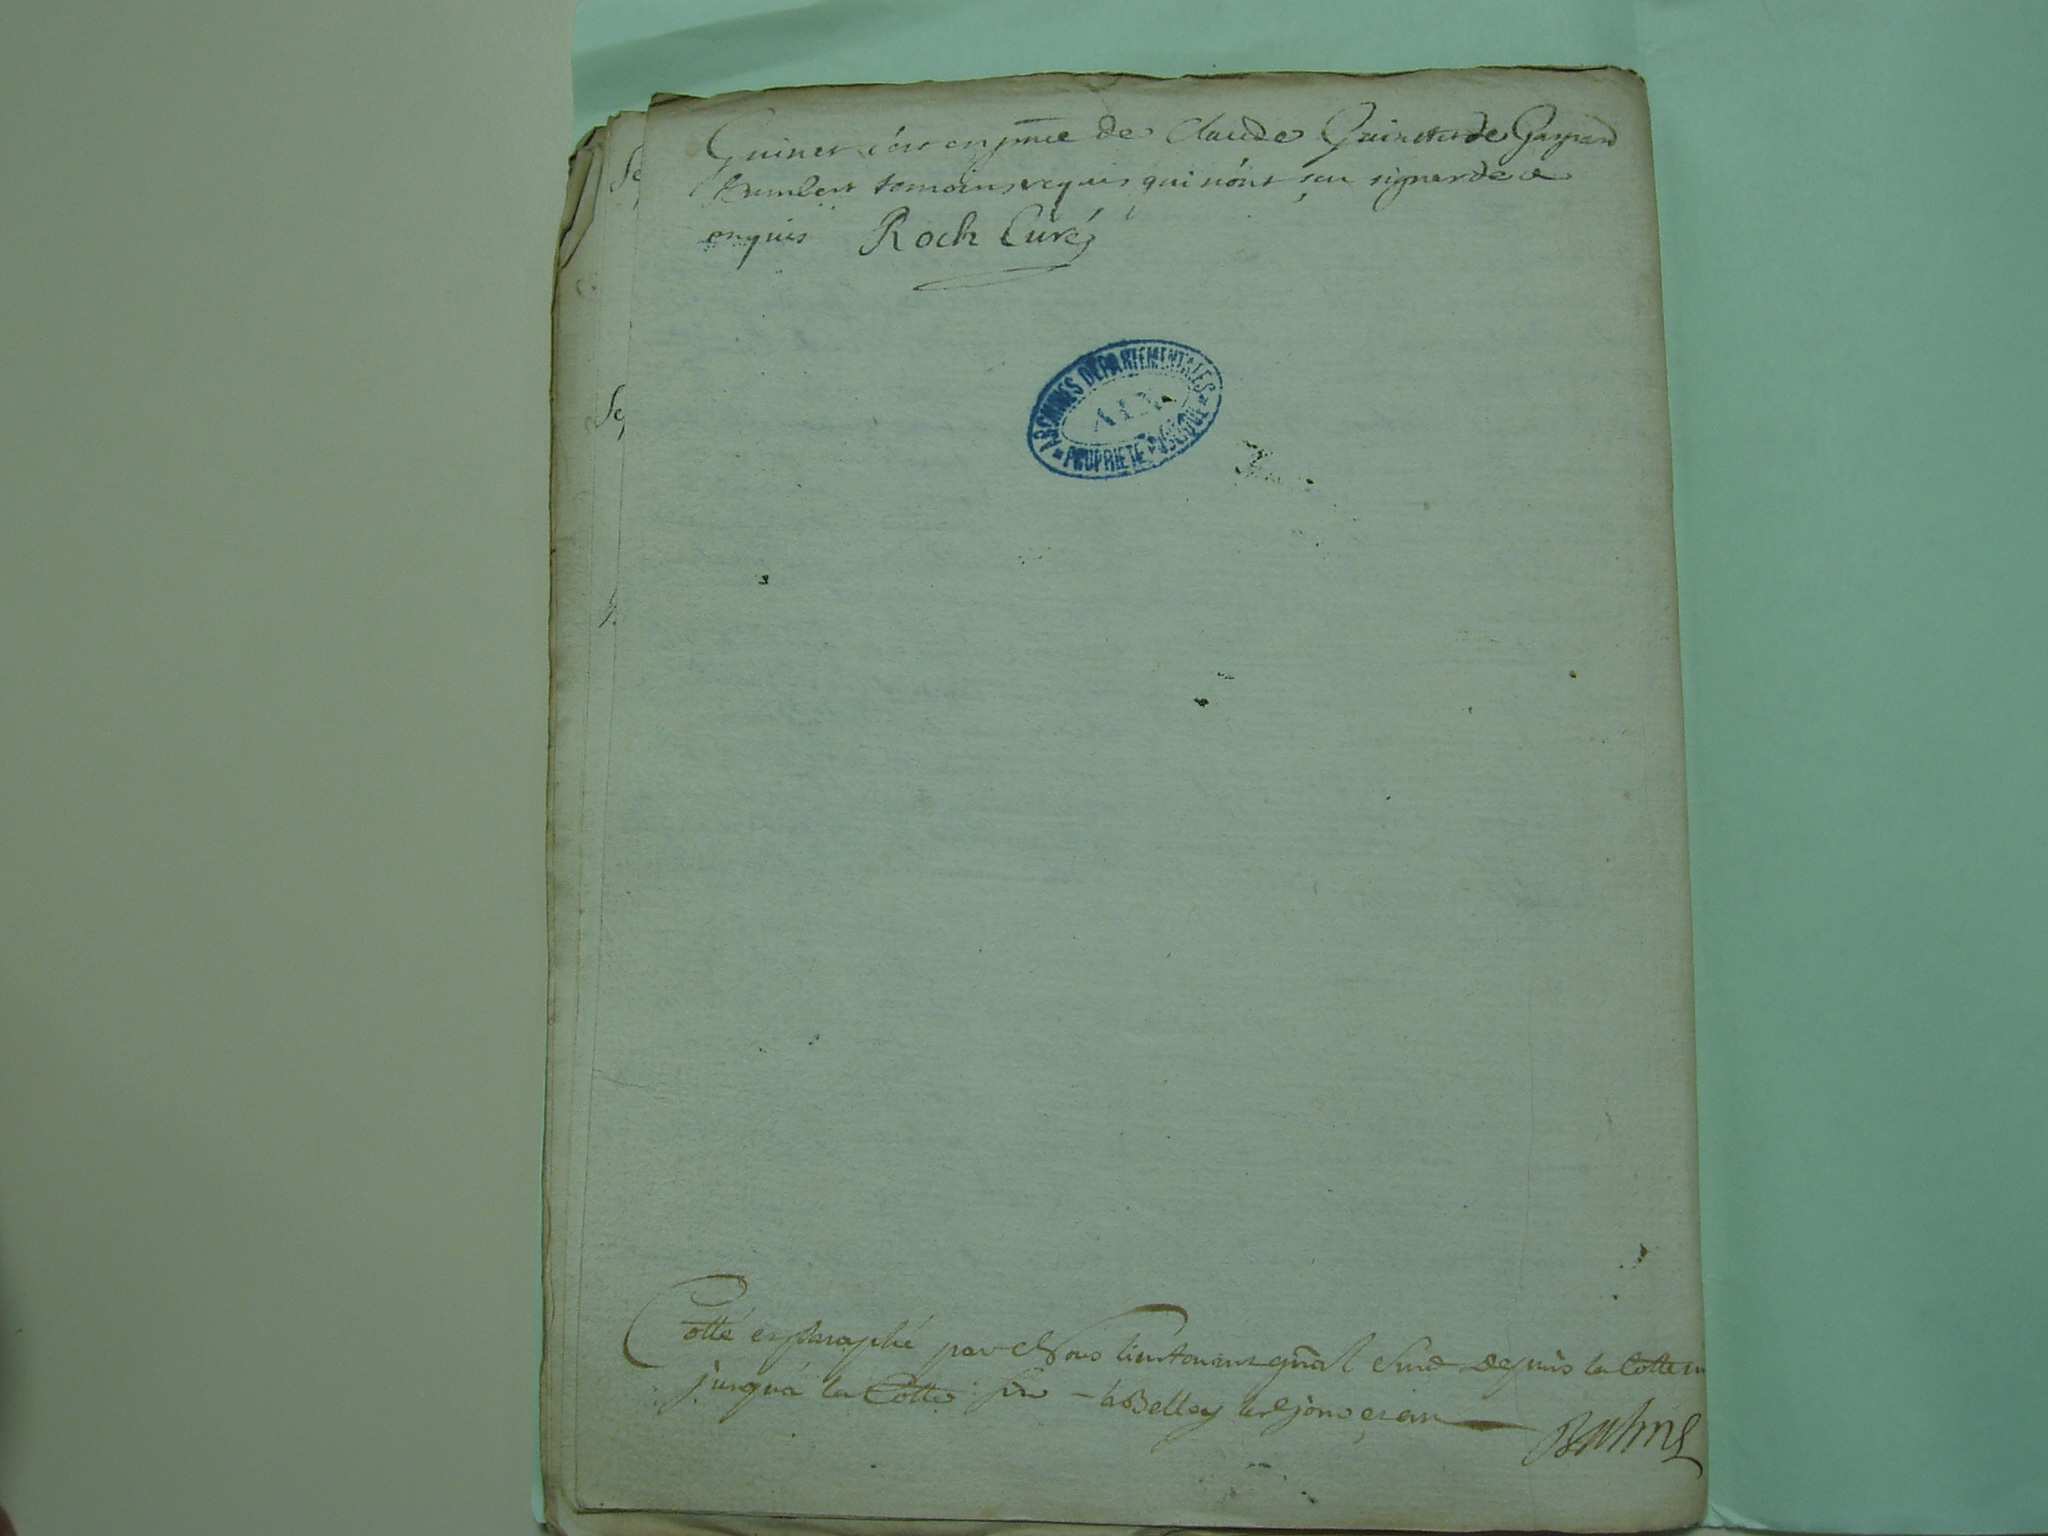 Guinet cé en pnce de Claude Guinet et de Gaspard
humbert temoins requis qui n'ont sçu signer de ce
enquis Roch Curé
ARCHIVES DÉPARTEMENTALES
AIN
PROPRIÉTÉ PUBLIQUE
Cotté et paraphé par Nous lieutenant gnãl depuis la Cotte
jusqu'a la Cotte six a Belley les jour et an